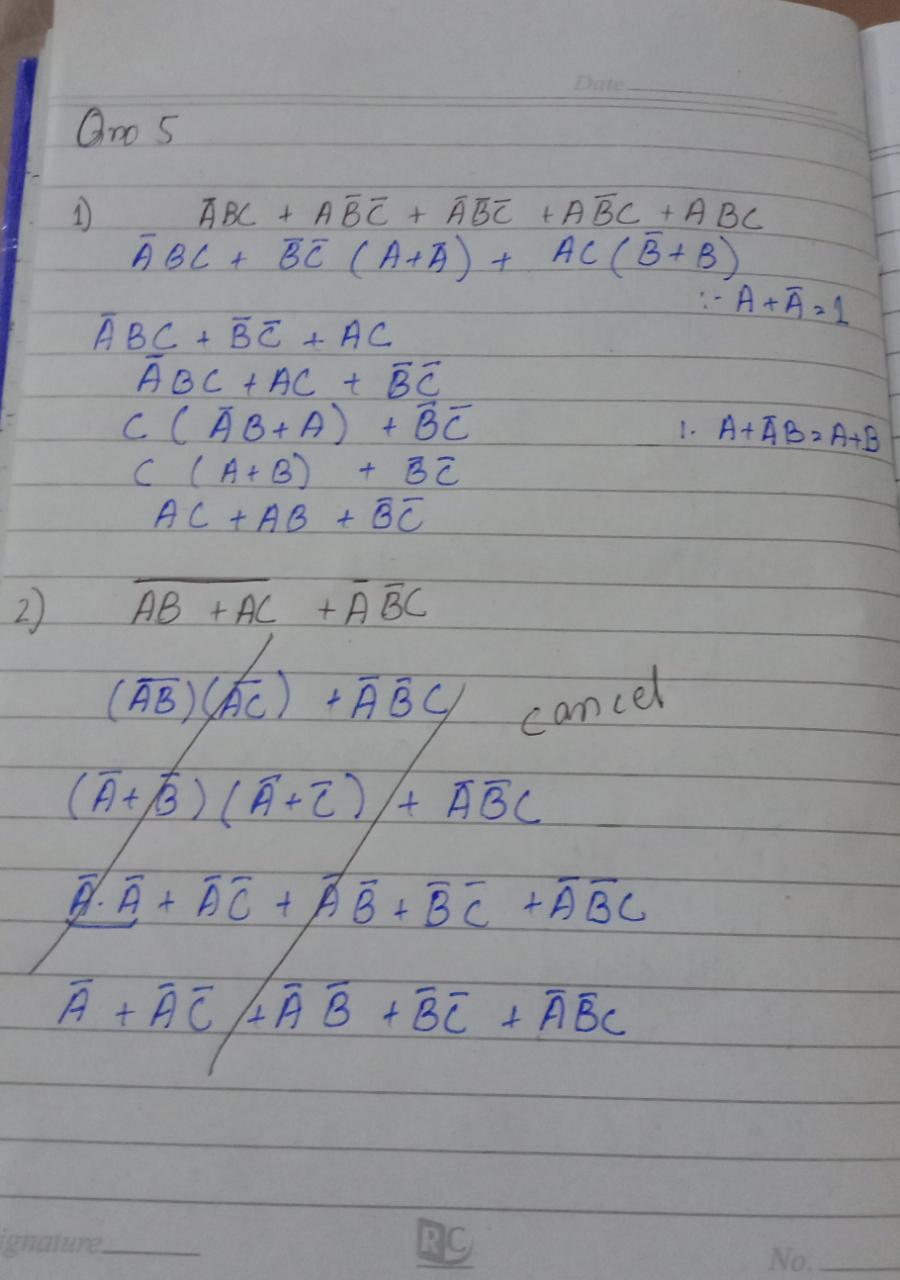 Date
Qno 5
1) A̅BC + AB̅C̅ + A̅B̅C̅ + AB̅C + ABC
A̅BC + B̅C̅ (A+A̅) + AC(B̅+B)
∵ A+A̅=1
A̅BC + B̅C̅ + AC
A̅BC + AC + B̅C̅
C (A̅B+A) + B̅C̅ ∵ A+A̅B=A+B
C (A+B) + B̅C̅
AC + AB + B̅C̅
2) \overline{AB + AC} + A̅B̅C
(\overline{AB})(\overline{AC}) + A̅B̅C cancel
(A̅+B̅)(A̅+C̅) + A̅B̅C
A̅.A̅ + A̅C̅ + A̅B̅ + B̅C̅ + A̅B̅C
A̅ + A̅C̅ + A̅B̅ + B̅C̅ + A̅B̅C
ignature RC No.